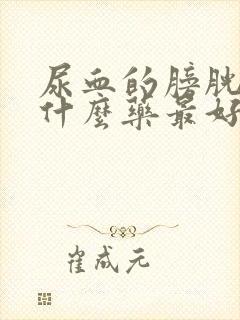 尿血的膀胱
什麼藥最好
崔成元